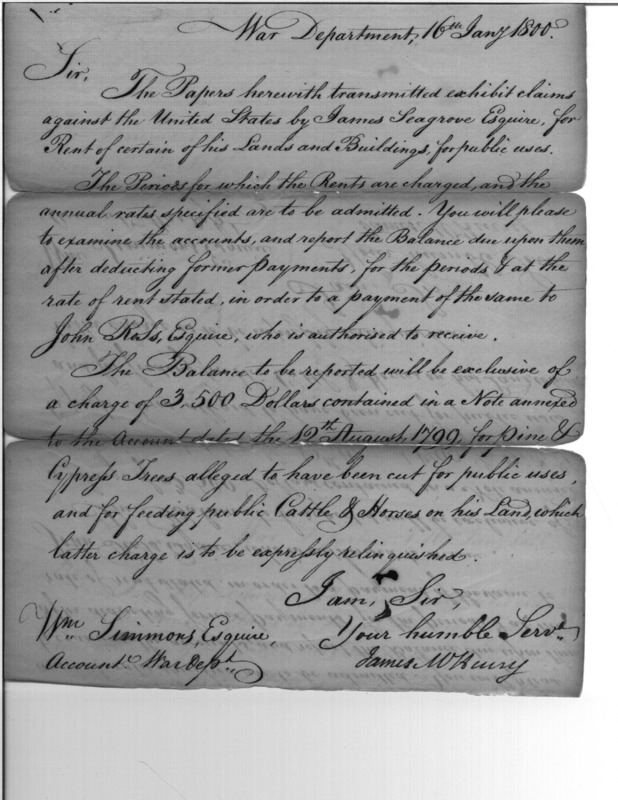 War Department, 16th Jany 1800.
Sir,
The Papers herewith transmitted exhibit claims
against the United States by James Seagrove Esquire, for
Rent of certain of his Lands and Buildings, for public uses.
The Periods for which the Rents are charged, and the
annual rates specified are to be admitted. You will please
to examine the accounts, and report the Balance due upon them
after deducting former payments, for the periods & at the
rate of rent stated, in order to a payment of the same to
John Ross, Esquire, who is authorised to receive.
The Balance to be reported will be exclusive of
a charge of 3,500 Dollars contained in a Note annexed
to the Account dated the 12th August, 1799, for Pine &
Cypress Trees alleged to have been cut for public uses,
and for feeding public Cattle & Horses on his Land, which
latter charge is to be expressly relinquished.
I am, Sir,
Wm Simmons, Esquire, Your humble Servt.
Accountt. War Dept. James McHenry